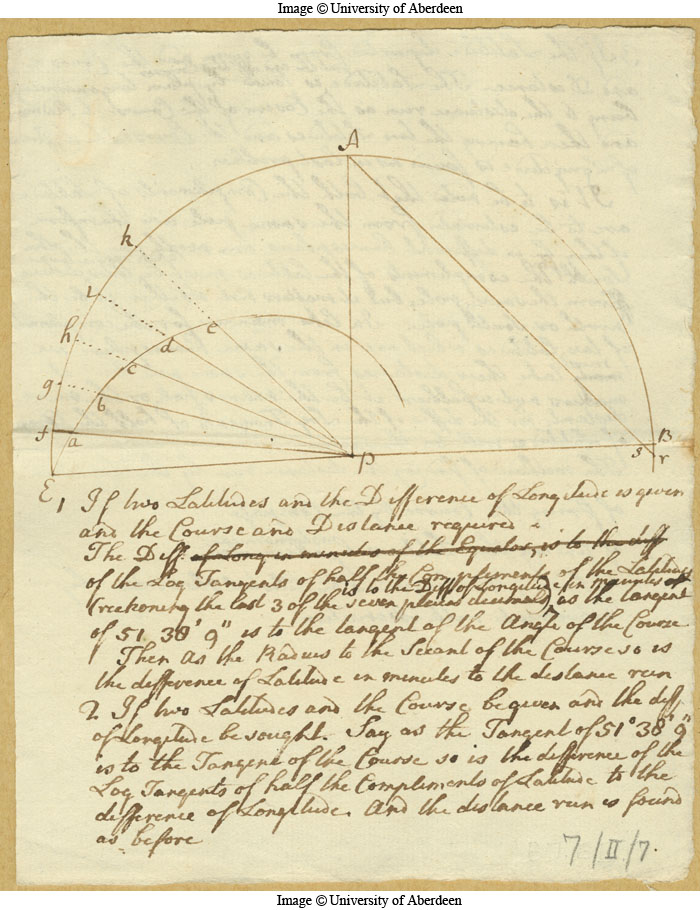 Image © University of Aberdeen
A
k
i
h
g
f
e
d
c
b
a
E
P
s
B
r
1 If two Latitudes and the Difference of Longitude is given
and the Course and Distance required
The Diff: of Long in minutes of the Equator, is to the diff
of the Log Tangents of half the Compliments of the Latitudes
is to the Diff of Longitude in minutes
(reckoning the last 3 of the seven places decimals) as the tangent
of 51 38' 9" is to the tangent of the Angle of the Course
Then As the Radius to the Secant of the Course so is
the difference of Latitude in minutes to the distance run
2 If two Latitudes and the Course be given and the diff
of Longitude be sought. Say as the Tangent of 51° 38' 9"
is to the Tangent of the Course so is the difference of the
Log Tangents of half the Compliments of Latitude to the
difference of Longitude. And the distance run is found
as before
7/II/7.
Image © University of Aberdeen